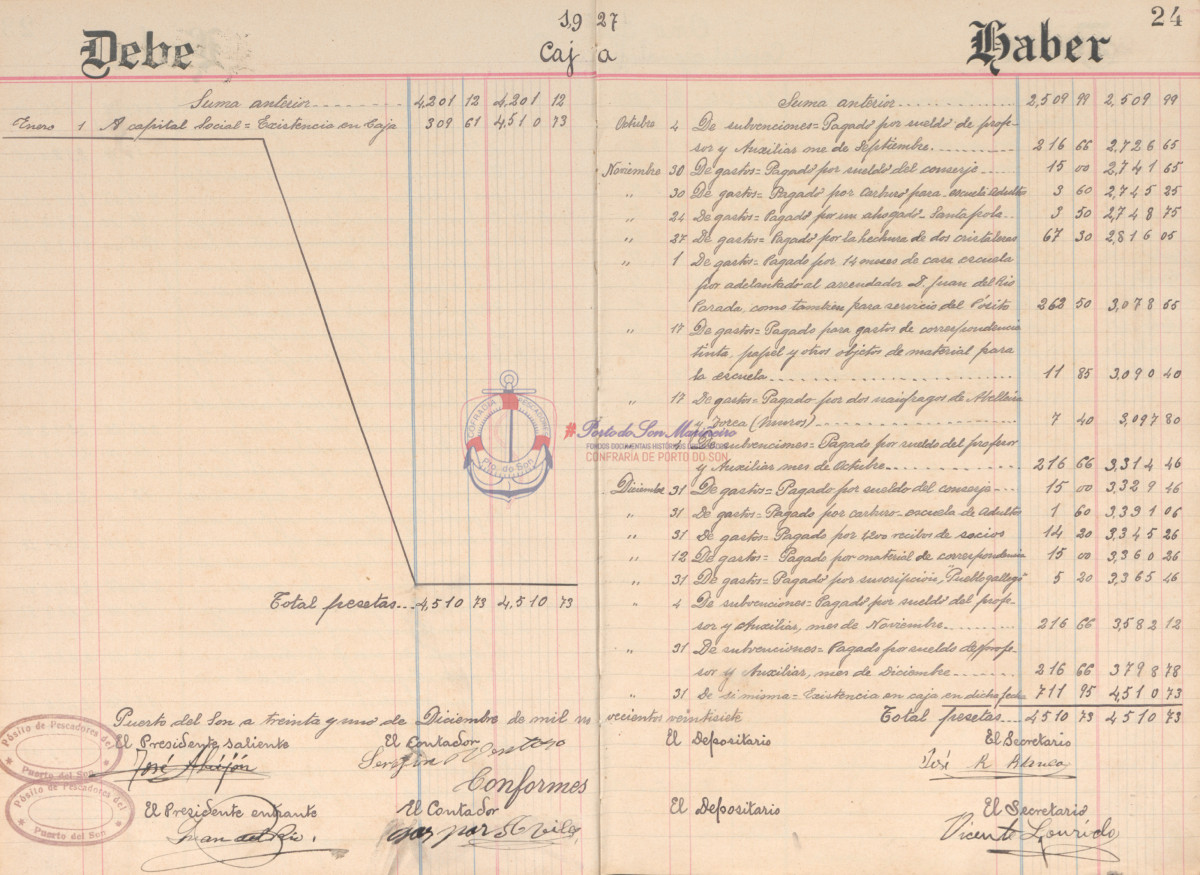 1927
24
Debe
Caja
Haber
Suma anterior 4,201 12 4,201 12
Enero 1 A capital Social = Existencia en Caja 309 61 4,510 73
Total pesetas 4,510 73 4,510 73
Suma anterior 2,509 99 2,509 99
Octubre 4 De subvenciones = Pagado por sueldo de profe-
sor y Auxiliar me de Septiembre 216 66 2,726 65
Noviembre 30 De gastos = Pagado por sueldo del conserje 15 00 2,741 65
" 30 De gastos = Pagado por carburo para escuela Adultos 3 60 2,745 25
" 24 De gastos = Pagado por un ahogado Santapola 3 50 2,748 75
" 27 De gastos = Pagado por la hechura de dos cristaleras 67 30 2,816 05
" 1 De gastos = Pagado por 14 meses de casa escuela
por adelantado al arrendador D. Juan del Rio
Parada, como tambien para servicio del Pósito 262 50 3,078 55
" 17 De gastos = Pagado para gastos de correspondencia
tinta, papel y otros objetos de material para
la escuela 11 85 3,090 40
" 17 De gastos = Pagado por dos naúfragos de Abellaira
y Dorea (Muros) 7 40 3,097 80
" 4 De subvenciones = Pagado por sueldo del profesor
y Auxiliar mes de Octubre 216 66 3,314 46
Diciembre 31 De gastos = Pagado por sueldo del conserje 15 00 3,329 46
" 31 De gastos = Pagado por carburo escuela de Adultos 1 60 3,331 06
" 31 De gastos = Pagado por 1200 recibos de socios 14 20 3,345 26
" 12 De gastos = Pagado por material de correspondencia 15 00 3,360 26
" 31 De gastos = Pagado por suscripción, "Pueblo gallego" 5 20 3,365 46
" 4 De subvenciones = Pagado por sueldo del profe-
sor y Auxiliar, mes de Noviembre 216 66 3,582 12
" 31 De subvenciones = Pagado por sueldo del profe-
sor y Auxiliar, mes de Diciembre 216 66 3798 78
" 31 De si misma = Existencia en caja en dicha fecha 711 95 4,510 73
Total pesetas 4510 73 4510 73
COFRADIA PESCADORES
Pto. do Son
#Porto do Son Mariñeiro
FONDOS DOCUMENTAIS HISTÓRICOS
CONFRARÍA DE PORTO DO SON
Puerto del Son a treinta y uno de Diciembre de mil novecientos veintisiete
El Presidente saliente El Contador El Depositario El Secretario
José Abeijón
José R Blanco
Conformes
El Presidente entrante El Contador El Depositario El Secretario
Juan del Rio.
Vicente Lourido
Pósito de Pescadores del
Puerto del Son
Pósito de Pescadores del
Puerto del Son